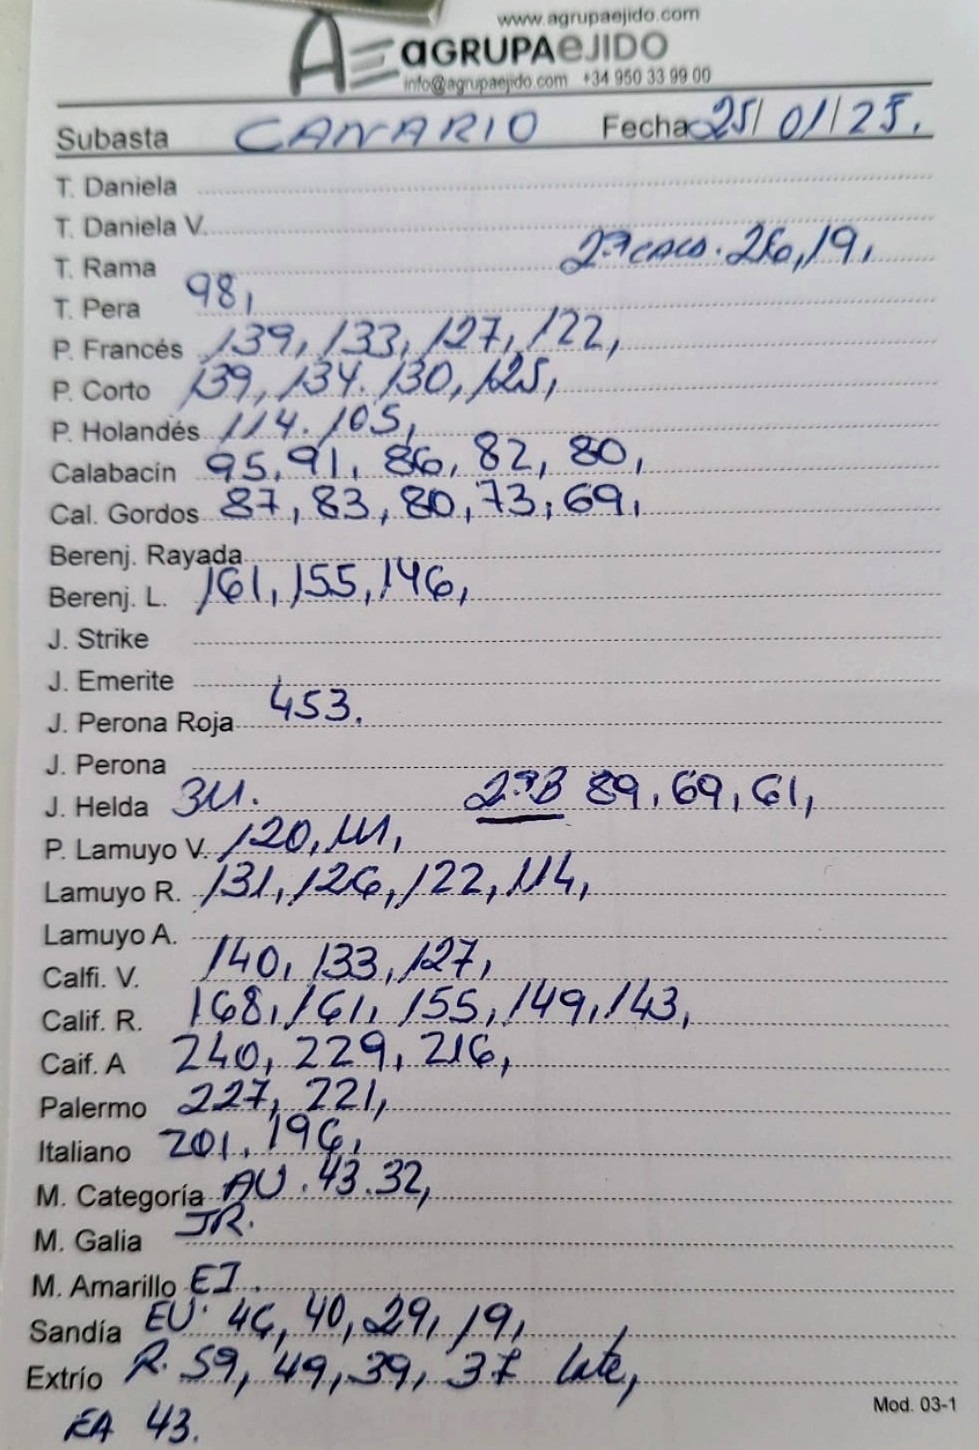 www.agrupaejido.com
AE aGRUPAeJIDO
info@agrupaejido.com +34 950 33 99 00
Subasta CANARIO Fecha 25/01/25.
T. Daniela
T. Daniela V.
T. Rama 26, 19,
T. Pera 98,
P. Francés 139, 133, 127, 122,
P. Corto 139, 134. 130, 125,
P. Holandés 114. 105,
Calabacín 95, 91, 86, 82, 80,
Cal. Gordos 87, 83, 80, 73, 69,
Berenj. Rayada
Berenj. L. 161, 155, 146,
J. Strike
J. Emerite
J. Perona Roja 453.
J. Perona
J. Helda 311. 2ªB 89, 69, 61,
P. Lamuyo V. 120, 111,
Lamuyo R. 131, 126, 122, 114,
Lamuyo A.
Calfi. V. 140, 133, 127,
Calif. R. 168, 161, 155, 149, 143,
Caif. A 240, 229, 216,
Palermo 227, 221,
Italiano 201. 196,
M. Categoría AU. 43. 32,
M. Galia JR.
M. Amarillo EJ.
Sandía EU. 46, 40, 29, 19,
Extrío R. 59, 49, 39, 37 lote,
EA 43.
Mod. 03-1